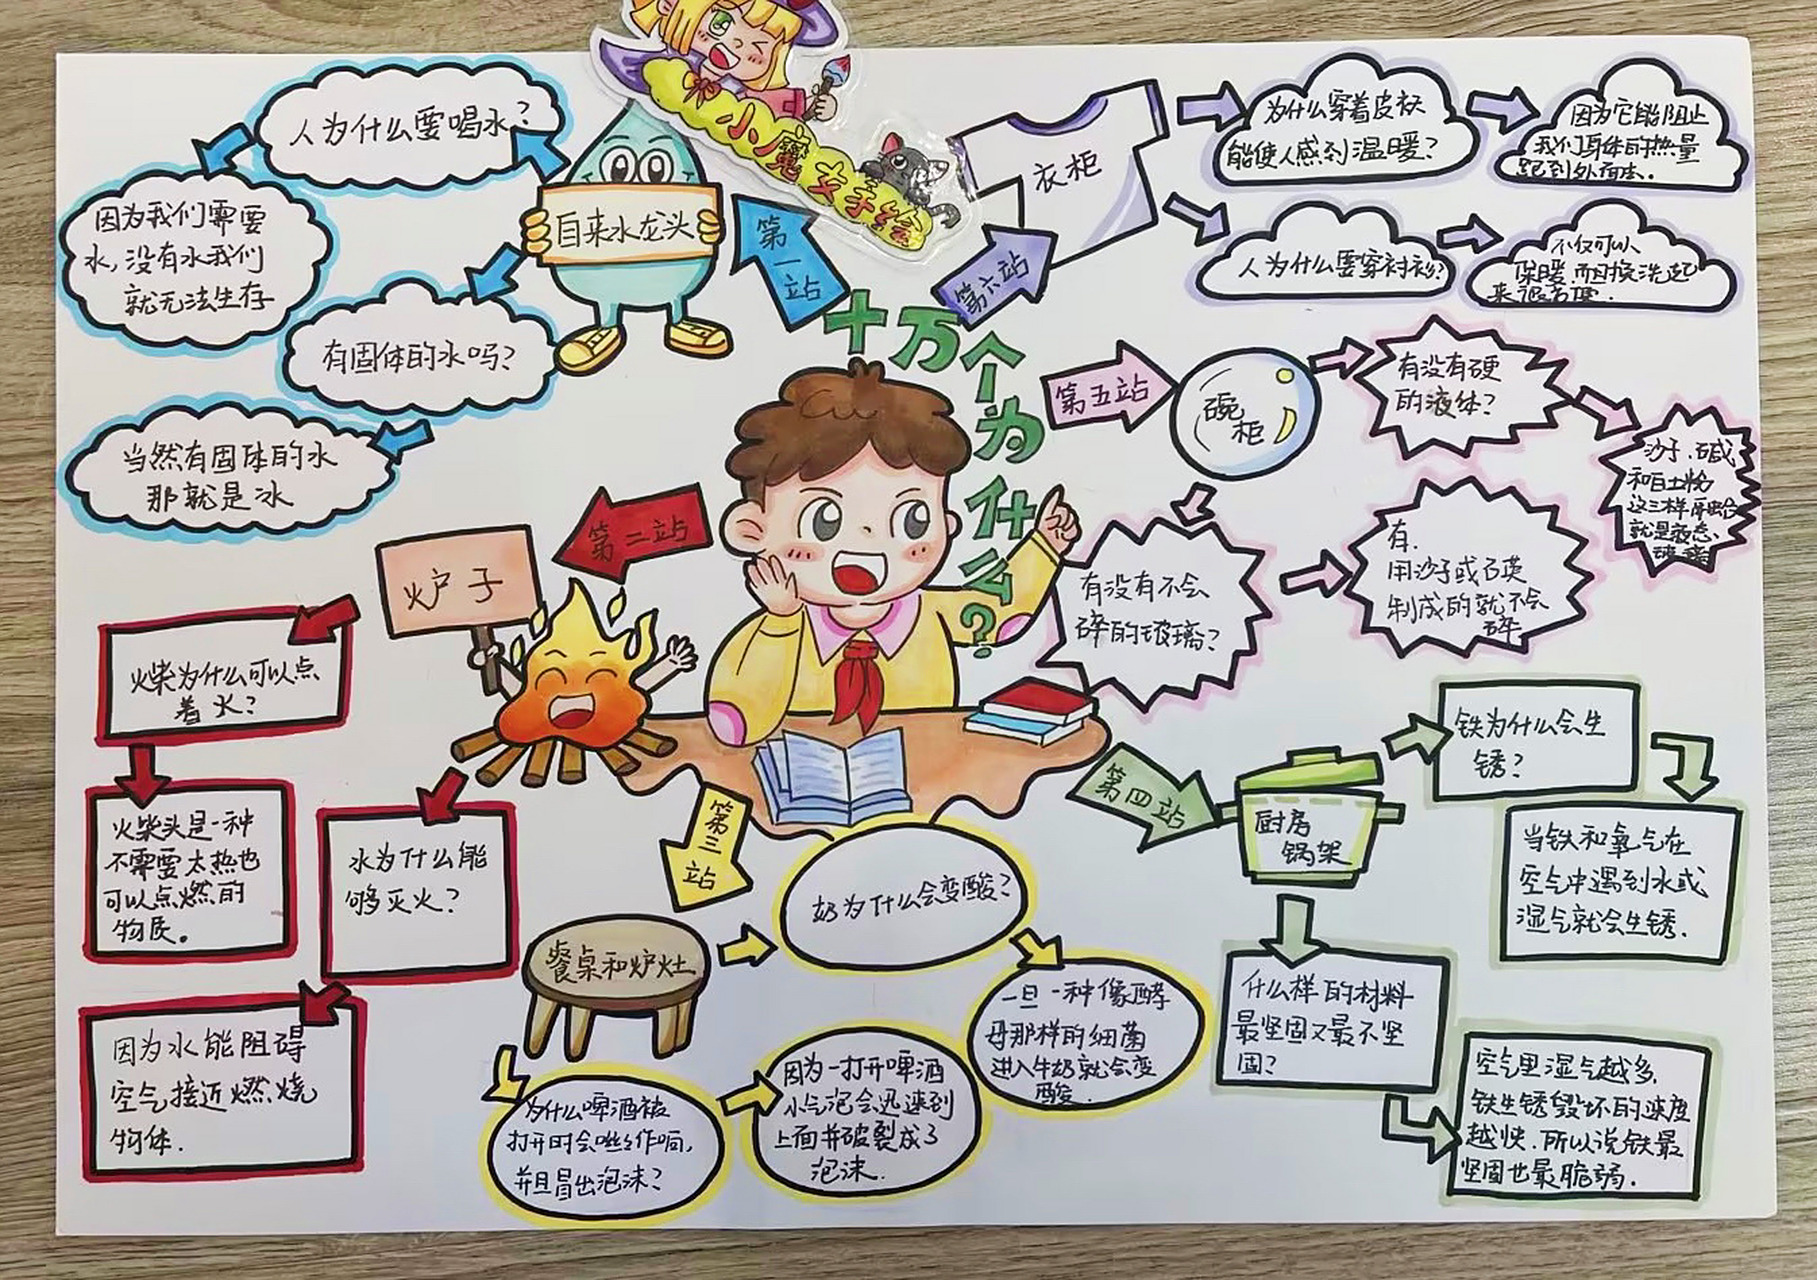 小魔女手绘
十万个为什么?
第一站
自来水龙头
人为什么要喝水?
因为我们需要
水,没有水我们
就无法生存
有固体的水吗?
当然有固体的水
那就是冰
第二站
炉子
火柴为什么可以点
着火?
火柴头是一种
不需要太热也
可以点燃的
物质。
水为什么能
够灭火?
因为水能阻碍
空气接近燃烧
物体.
第三站
餐桌和炉灶
奶为什么会变酸?
一旦一种像酵
母那样的细菌
进入牛奶就会变
酸.
为什么啤酒被
打开时会咝咝作响,
并且冒出泡沫?
因为一打开啤酒
小气泡会迅速到
上面并破裂成了
泡沫.
第四站
厨房
锅架
铁为什么会生
锈?
当铁和氧气在
空气中遇到水或
湿气就会生锈.
什么样的材料
最坚固又最不坚
固?
空气里湿气越多,
铁生锈毁坏的速度
越快.所以说铁最
坚固也最脆弱.
第五站
碗
柜
有没有硬
的液体?
沙子、碱
和白土粉
这三样
就是液态
有没有不会
碎的玻璃?
有.
用沙子或石英
制成的就不会
碎
第六站
衣柜
为什么穿着皮袄
能使人感到温暖?
因为它能阻止
我们身体的热量
跑到外面去.
人为什么要穿衬衫?
不仅可以
保暖.而且换洗起
来很方便.